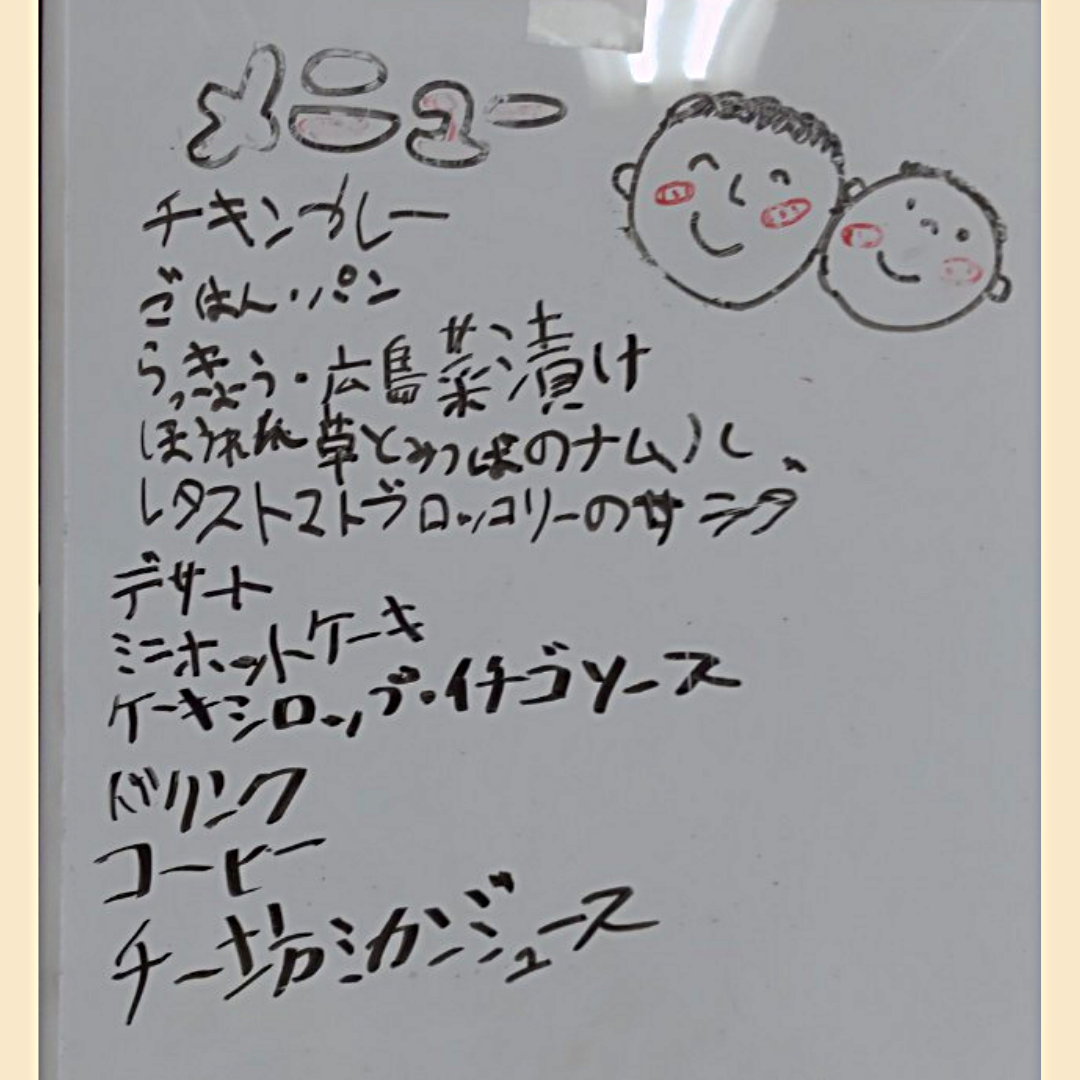 メニュー
チキンカレー
ごはん・パン
らっきょう・広島菜漬け
ほうれん草とみつばのナムル
レタストマトブロッコリーのサラダ
デザート
ミニホットケーキ
ケーキシロップ・イチゴソース
ドリンク
コーヒー
チー坊ミカンジュース